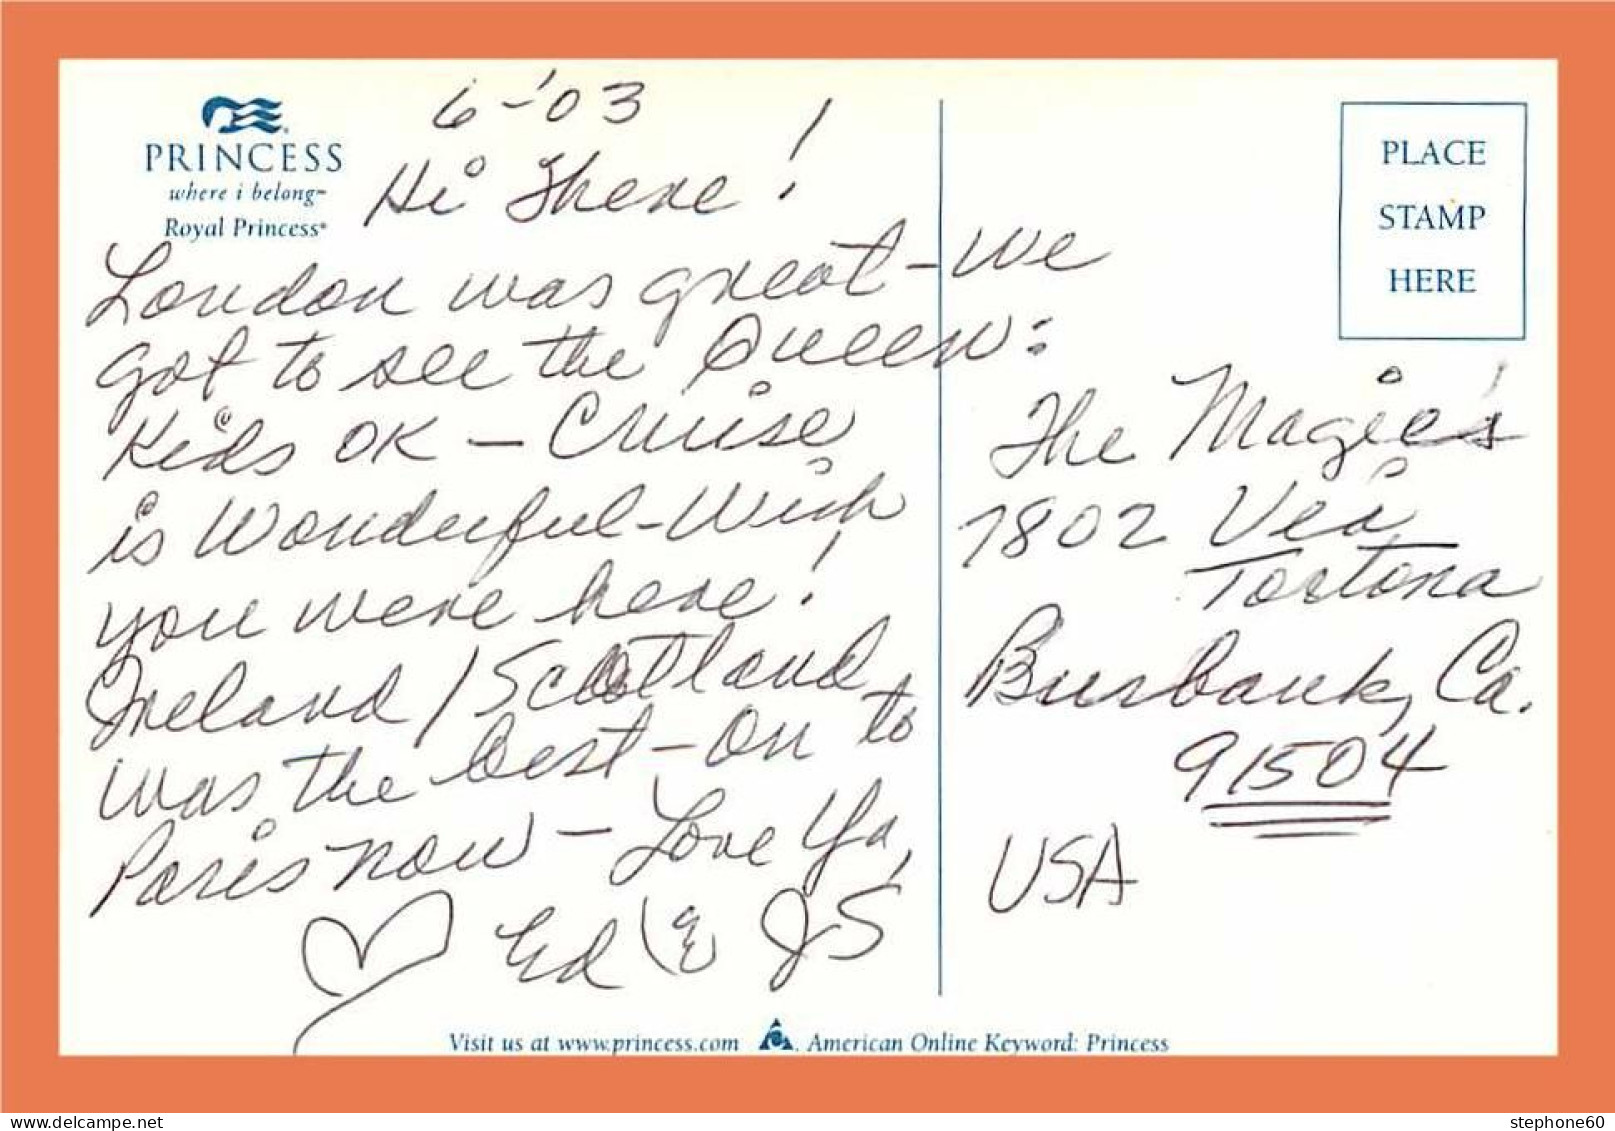 PRINCESS
where i belong℠
Royal Princess®
6-'03
Hi There!
London was great - we
got to see the Queen:
Kids OK - Cruise
is Wonderful - Wish
you were here!
Ireland / Scotland
was the best - On to
Paris now - Love Ya,
Ed & JS
PLACE
STAMP
HERE
The Magie's
7802 Via
Tortona
Burbank, Ca.
91504
USA
Visit us at www.princess.com American Online Keyword: Princess
stephone60